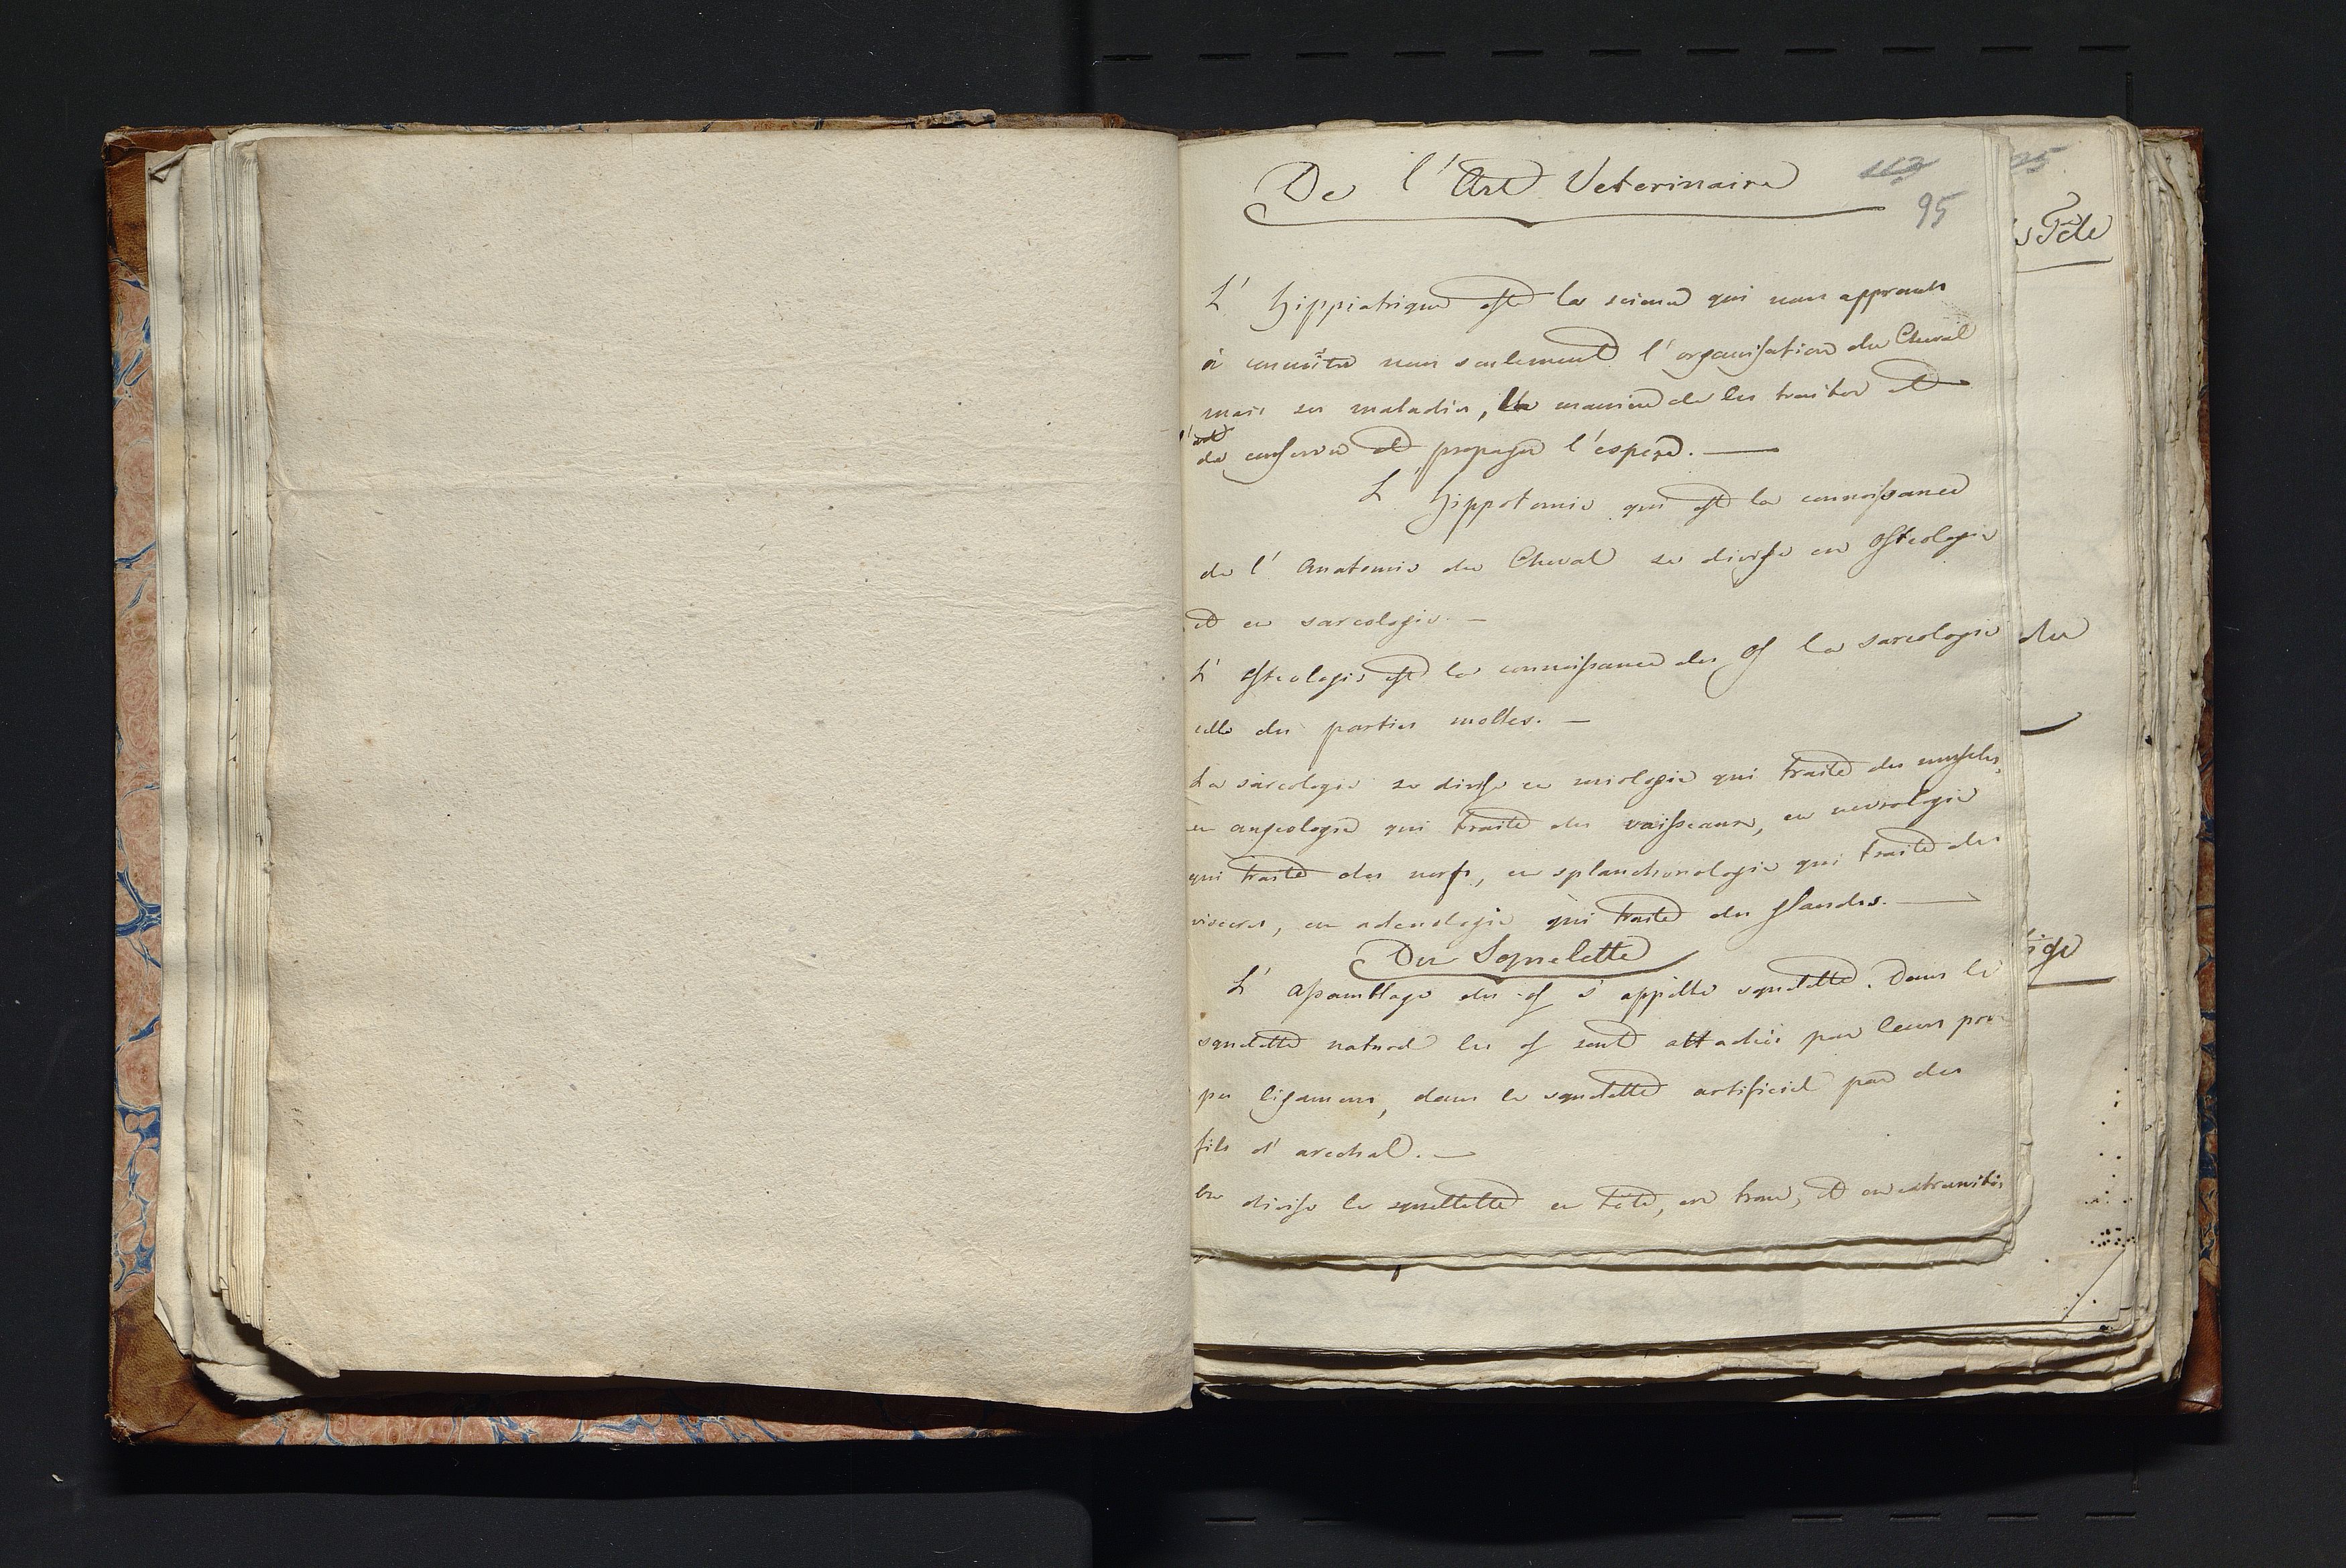 De l'Art Veterinaire
113
95
L' hippiatrique est la science qui nous apprends
à connoître non seulement l'organisation du Cheval
mais ses maladies, la maniere de les traiter et
l'art
de conserver et propager l'espece. —
L' hippotomie qui est la connoissance
de l' Anatomie du Cheval se divise en Osteologie
et en sarcologie. —
L' Osteologie est la connoissance des Os la sarcologie
celle des parties molles. —
La sarcologie se divise en miologie qui traite des muscles,
en angeologie qui traite des vaisseaux, en nevrologie
qui traite des nerfs, en splanchonologie qui traite des
visceres, en adenologie qui traite des glandes. —
Du Squelette
L' assemblage des os s'appelle squelette. Dans le
squelette naturel les os sont attachés par leurs pro-
pres ligamens, dans le squelette artificiel par des
fils d' archal. —
On divise le squellette en tête, en tronc, et en extremités
25
Tête
du
ige